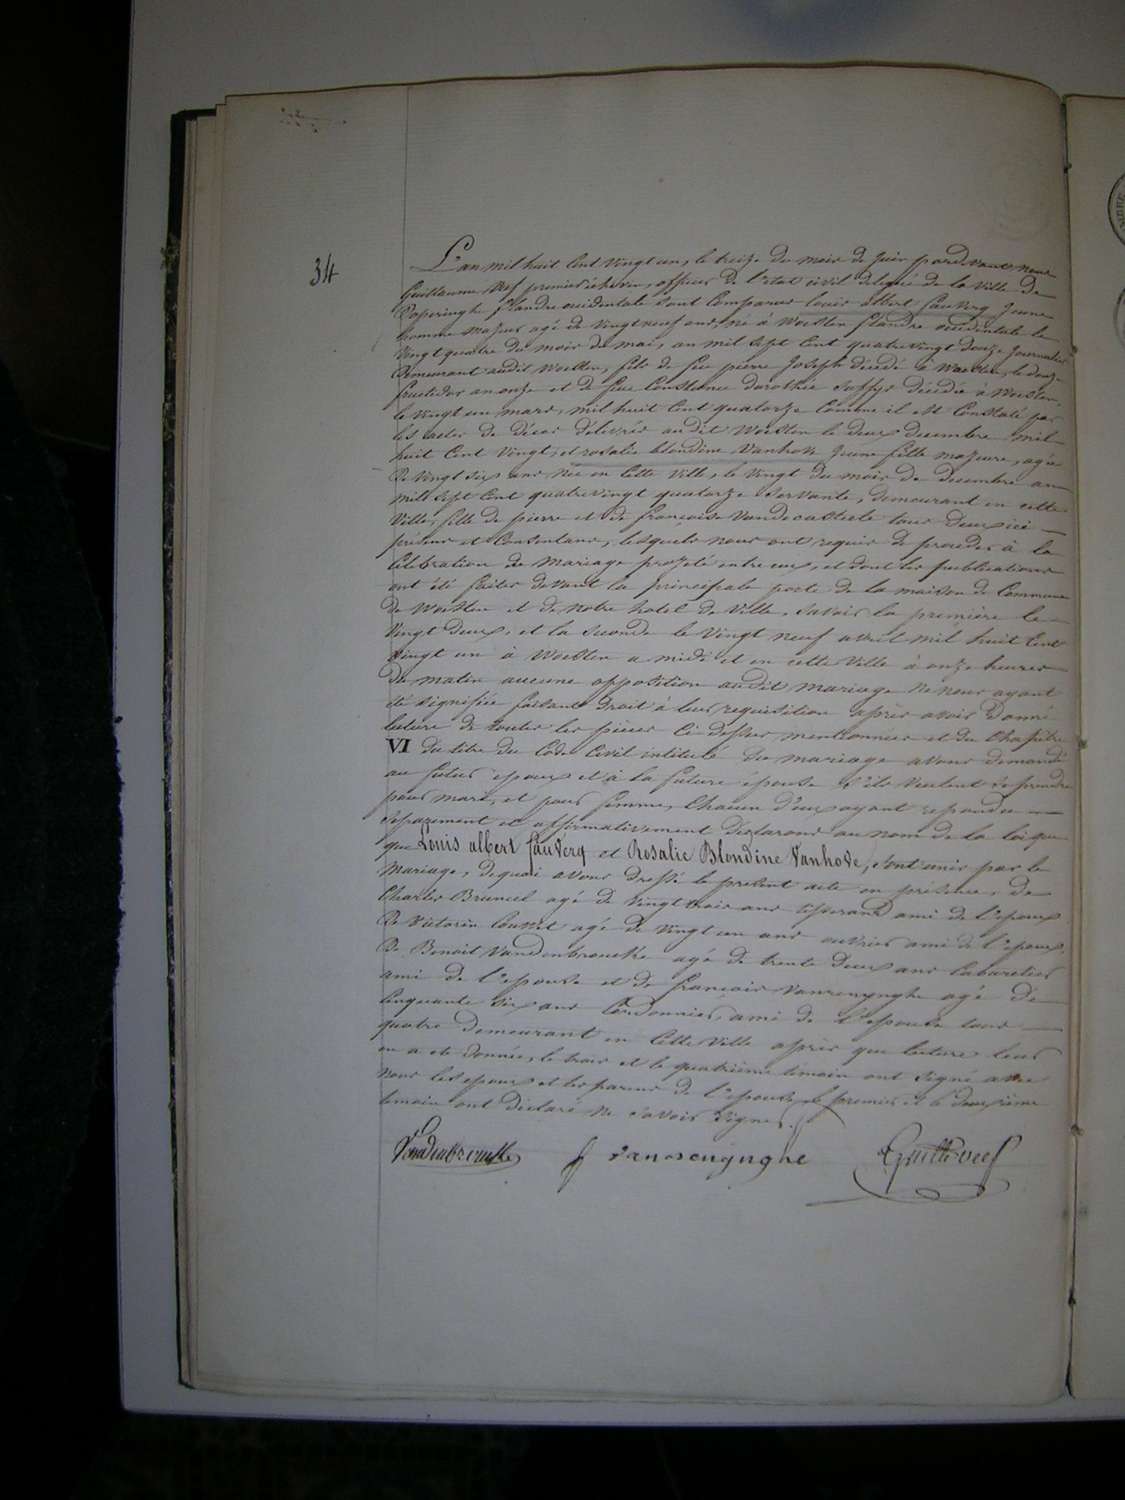 34
L'an mil huit Cent vingt un, le treize du mois de Juin pardevant nous
Guillaume Vef premier échevin, officier de l'état civil délégué de la Ville de
Poperinghe flandre occidentale sont Comparus louis albert fauverq Jeune
homme majeur agé de vingt neuf ans, né à Woesten flandre occidentale le
vingt quatre du mois de mai, an mil sept Cent quatre vingt douze Journalier
demeurant audit Woesten, fils de feu pierre Joseph décédé à Woesten, le douze
fructidor an onze et de feue Constance dorothée décédée à Woesten,
le vingt un mars, mil huit Cent quatorze Comme il est Constaté par
les actes de décès délivrés audit Woesten le deux decembre mil
huit Cent vingt, et rosalie blondine Vanhove Jeune fille majeure, agée
de vingt six ans née en Cette ville, le vingt du mois de decembre an
mil sept Cent quatrevingt quatorze servante, demeurant en cette
Ville, fille de pierre et de françoise Vandecasteele tous deux ici
présens et Consentans, lesquels nous ont requis de proceder à la
Célébration de mariage projeté entre eux, et dont les publications
ont été faites devant la principale porte de la maison de Commune
de Woesten et de notre hotel de Ville, Savoir la première le
vingt deux, et la Seconde le vingt neuf avril mil huit Cent
vingt un à Woesten a midi et en cette Ville à onze heures
du matin aucune opposition audit mariage ne nous ayant
été signifiée faisant droit à leur requisition après avoir donné
lecture de toutes les pièces Ci dessus mentionnées et du Chapitre
VI du titre du Code Civil intitulé du mariage avons demandé
au futur epoux et à la future épouse s'ils veulent se prendre
pour mari, et pour femme, Chacun d'eux ayant repondu
separement et affirmativement déclarons au nom de la loi que
que Louis albert fauverq et Rosalie Blondine Vanhove, sont unis par le
mariage, de quoi avons dressé le présent acte en présence, de
Charles Bruneel agé de vingt trois ans tisserand ami de l'epoux
De Victorin agé de vingt un ans ouvrier ami de l'epoux,
De Benoit Vandenbroucke agé de trente deux ans Cabaretier
ami de l'epouse et de françois Vanrenynghe agé de
Cinquante six ans Cordonnier, ami de l'epouse tous
quatre demeurant en Cette Ville après que lecture leur
en a été donnée, le trois et le quatrième témoin ont signé avec
nous les epoux et les parens de l'epouse, le premier et le deuxième
temoin ont déclaré ne savoir signer.
Vandenbroucke f vanrenynghe Guille Vef